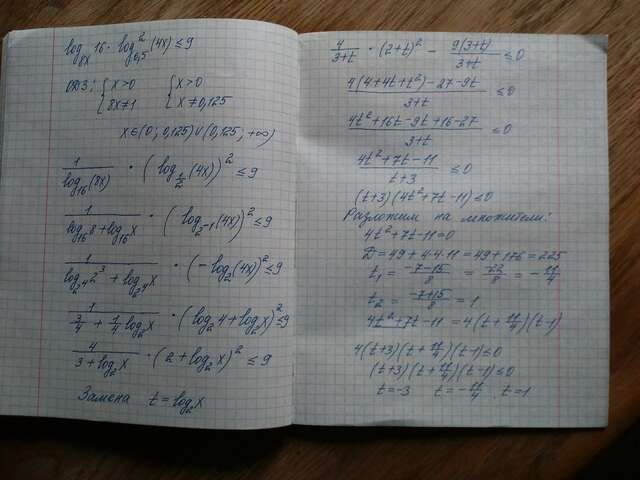 log_{8x} 16 · log²_{0,5} (4x) ≤ 9
ОДЗ: { x > 0 { x > 0
{ 8x ≠ 1 { x ≠ 0,125
x ∈ (0; 0,125) ∪ (0,125; +∞)
1/log_{16}(8x) · (log_{1/2}(4x))² ≤ 9
1/(log_{16}8 + log_{16}x) · (log_{2^{-1}}(4x))² ≤ 9
1/(log_{2^4}2³ + log_{2^4}x) · (-log_2(4x))² ≤ 9
1/(3/4 + 1/4 log_2x) · (log_2 4 + log_2x)² ≤ 9
4/(3 + log_2x) · (2 + log_2x)² ≤ 9
Замена t = log_2x
4/(3+t) · (2+t)² - 9(3+t)/(3+t) ≤ 0
(4(4+4t+t²) - 27 - 9t)/(3+t) ≤ 0
(4t² + 16t - 9t + 16 - 27)/(3+t) ≤ 0
(4t² + 7t - 11)/(t+3) ≤ 0
(t+3)(4t² + 7t - 11) ≤ 0
Разложим на множители:
4t² + 7t - 11 = 0
D = 49 + 4·4·11 = 49 + 176 = 225
t_1 = (-7-15)/8 = -22/8 = -11/4
t_2 = (-7+15)/8 = 1
4t² + 7t - 11 = 4(t + 11/4)(t-1)
4(t+3)(t + 11/4)(t-1) ≤ 0
(t+3)(t + 11/4)(t-1) ≤ 0
t = -3 t = -11/4, t = 1